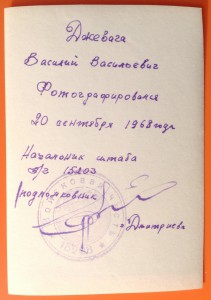 Джевага
Василий Васильевич
Фотографировался
20 сентября 1968 года
Начальник штаба
в/ч 15203
подполковник
Дмитриева